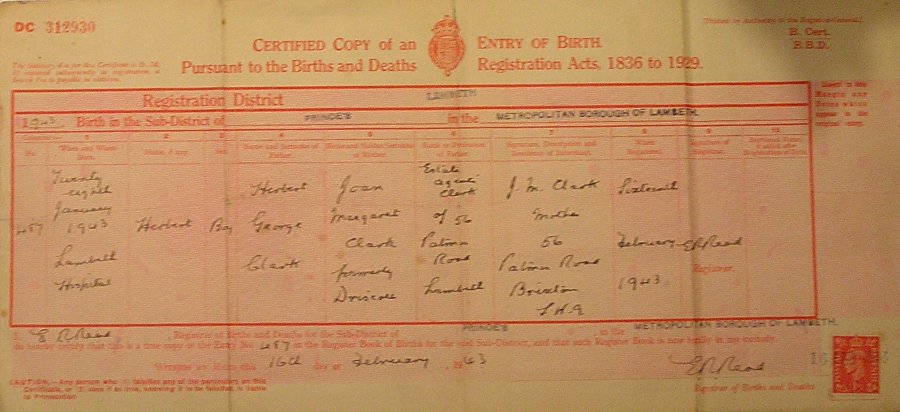 DC 312930
[Printed by Authority of the Registrar-General.]
B. Cert.
R.B.D.
CERTIFIED COPY of an ENTRY OF BIRTH.
Pursuant to the Births and Deaths Registration Acts, 1836 to 1929.
The Statutory Fee for this Certificate is
Registration District LAMBETH
1943. Birth in the Sub-District of PRINCE'S in the METROPOLITAN BOROUGH OF LAMBETH.
1 2 3 4 5 6 7 8 9 10
No. When and Where Born. Name, if any. Sex. Name and Surname of Father. Name and Maiden Surname of Mother. Rank or Profession of Father. Signature, Description and Residence of Informant. When Registered. Signature of Registrar.
487
Twenty eighth January 1943 Lambeth Hospital
Herbert
Boy
Herbert George Clark
Joan Margaret Clark formerly Driscoll
Estate agents Clerk of 56 Palmer Road Lambeth
J. M. Clark Mother 56 Palmer Road Brixton
Sixteenth February 1943
E R Read
Registrar.
I, E R Read, Registrar of Births and Deaths for the Sub-District of PRINCE'S in the METROPOLITAN BOROUGH OF LAMBETH.
do hereby certify that this is a true copy of the Entry No. 487 in the Register Book of Births for the said Sub-District, and that such Register Book is now legally in my custody.
WITNESS MY HAND this 16th day of February, 1943
E R Read
Registrar of Births and Deaths
CAUTION.—Any person who (1) falsifies any of the particulars on this
Certificate, or (2) uses it as true, knowing it to be falsified, is liable
to Prosecution